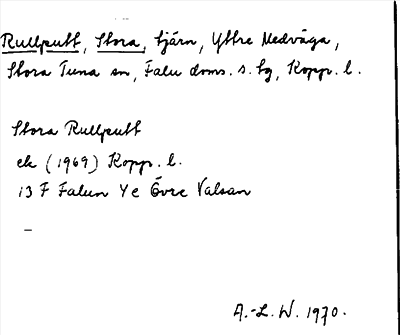 Rullputt, Stora, tjärn, Yttre Medväga,
Stora Tuna sn, Falu doms. s. lg, Kopp. l.
Stora Rullputt
ek (1969) Kopp. l.
13 F Falun Y e Övre Valsan
A.-L. W. 1970.